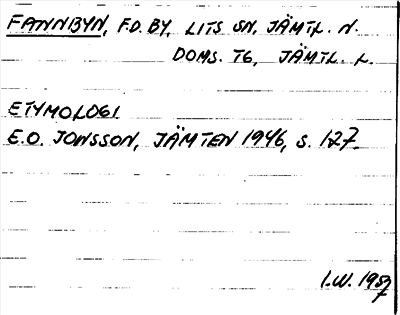 FANNBYN, F.D. BY, LITS SN, JÄMTL. N.
DOMS. TG, JÄMTL. L.
ETYMOLOGI
E.O. JONSSON, JÄMTEN 1946, S. 127.
I.W. 1987